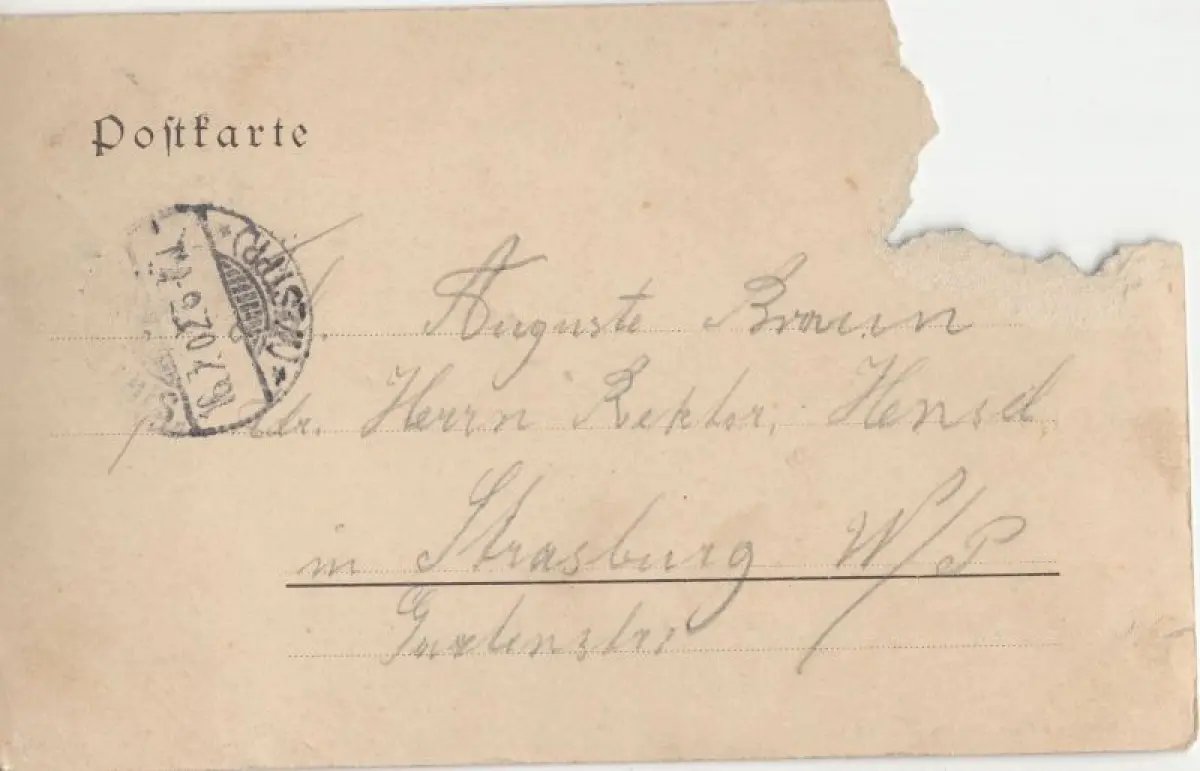 Postkarte
(WESTPR.)
19.7.07. 6-7 N.
Auguste Braun
Adr. Herrn Rektor, Hensel
in Strasburg W/P
Gartenstr